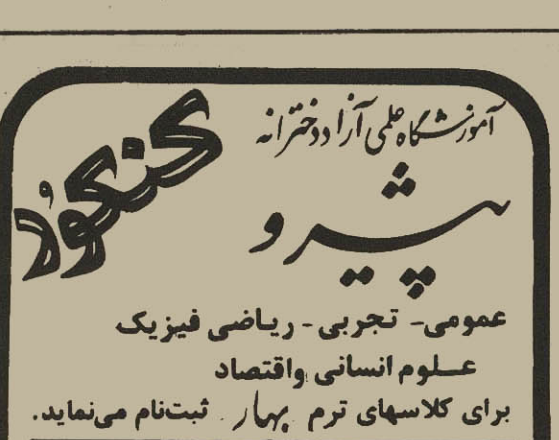 آموزشگاه علمی آزاد دخترانه
پیشرو
کنکور
عمومی- تجربی - ریاضی فیزیک
علوم انسانی واقتصاد
برای کلاسهای ترم بهار ثبت‌نام می‌نماید.